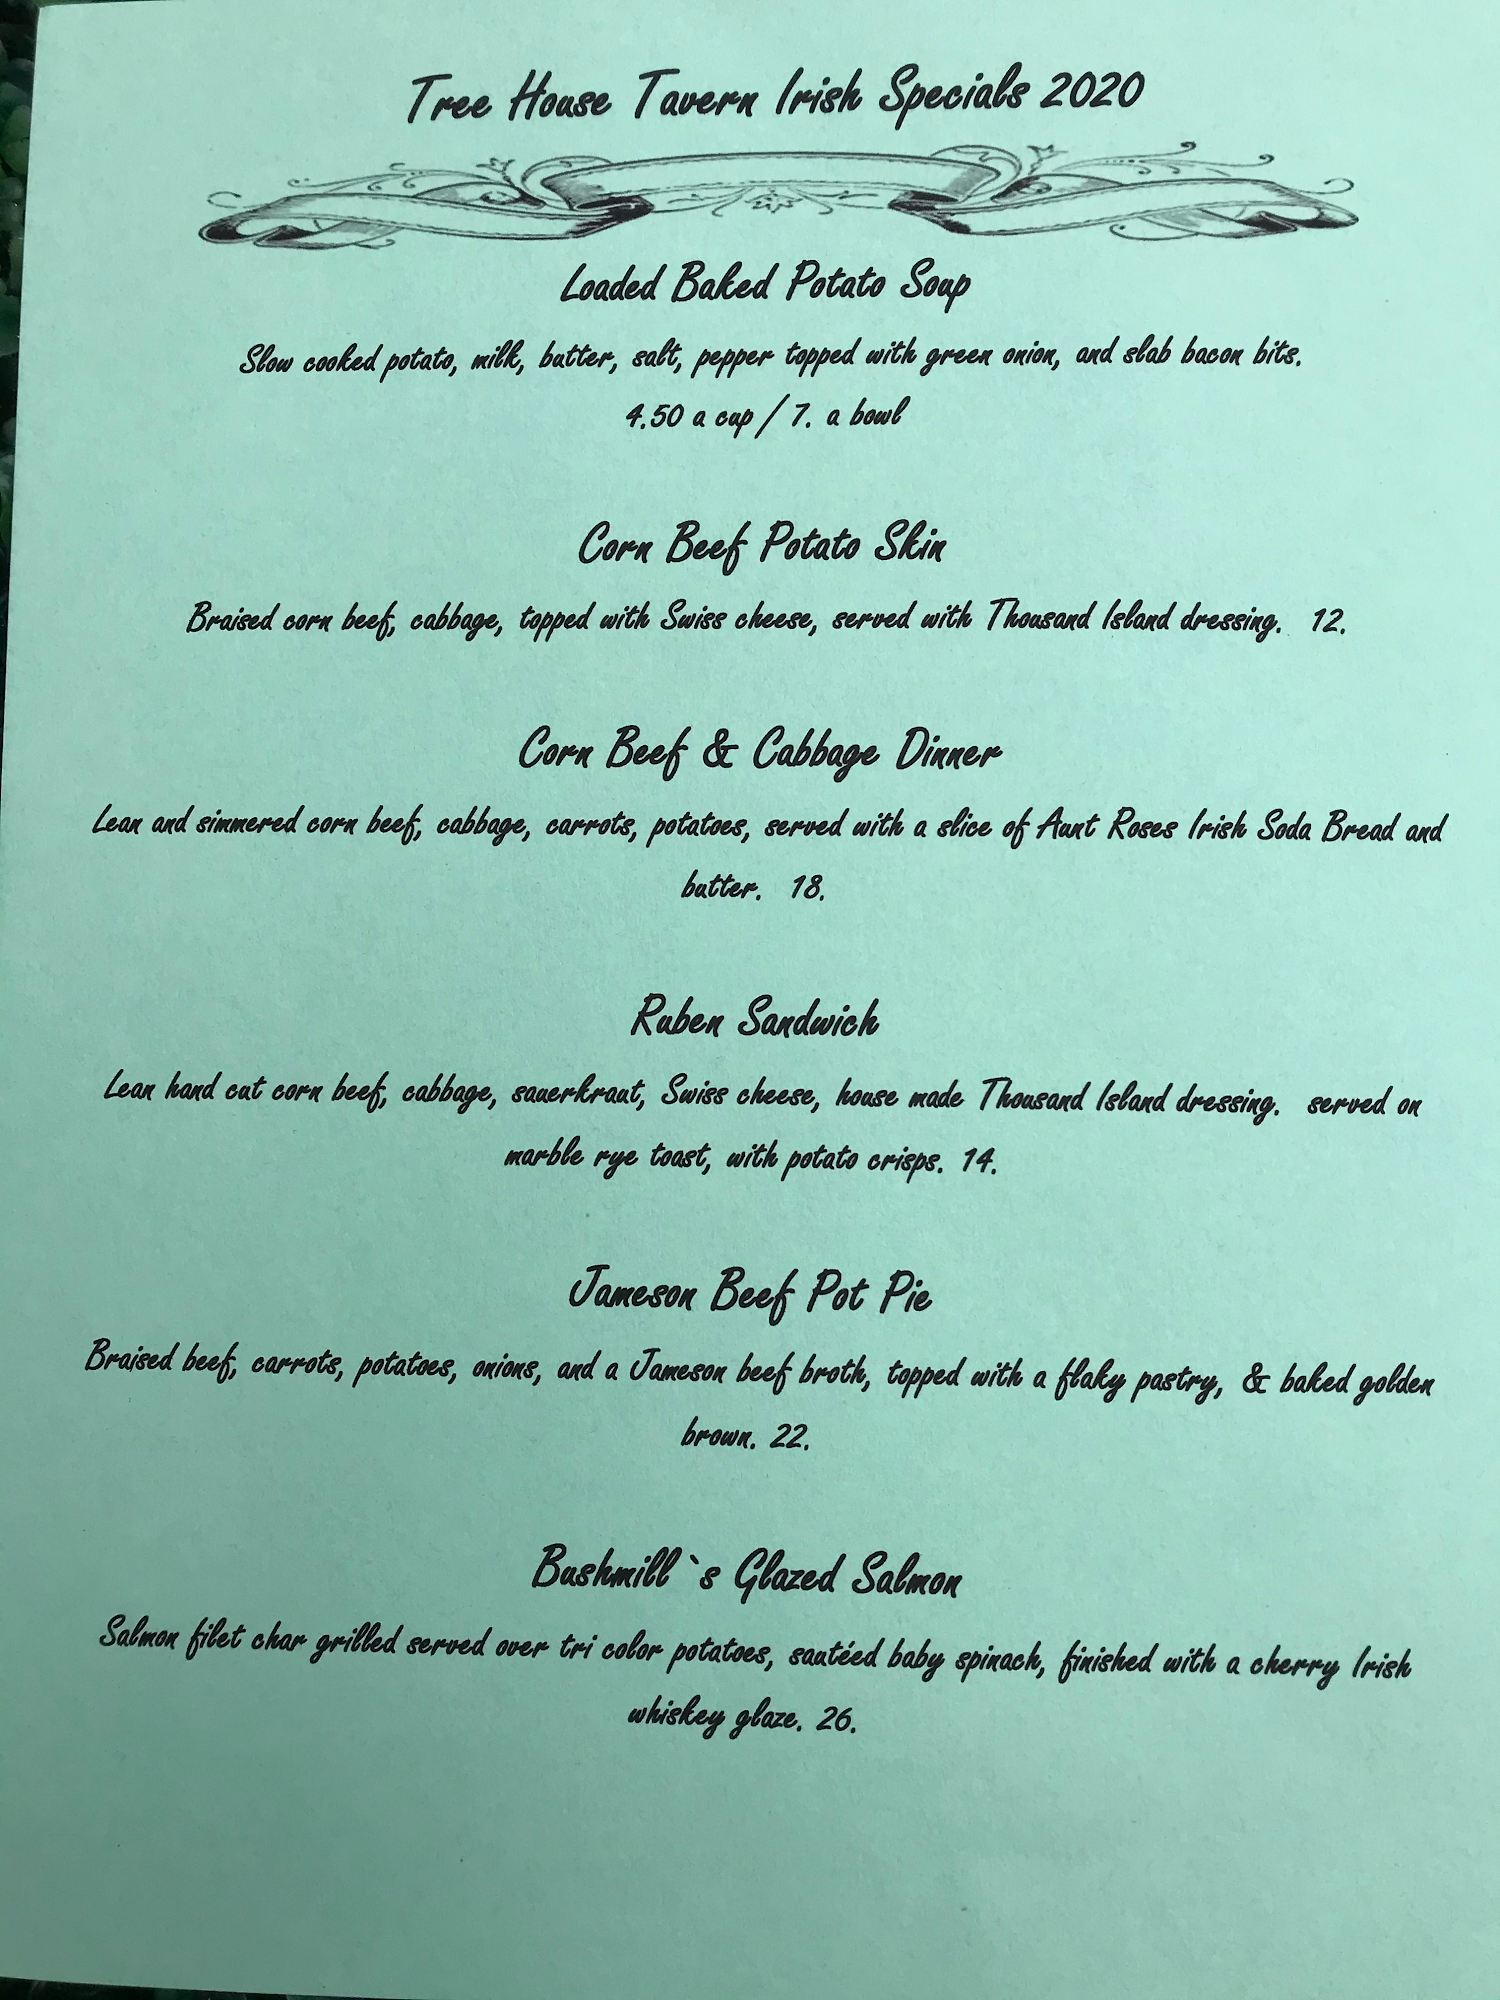 Tree House Tavern Irish Specials 2020
Loaded Baked Potato Soup
Slow cooked potato, milk, butter, salt, pepper topped with green onion, and slab bacon bits.
4.50 a cup / 7. a bowl
Corn Beef Potato Skin
Braised corn beef, cabbage, topped with Swiss cheese, served with Thousand Island dressing. 12.
Corn Beef & Cabbage Dinner
Lean and simmered corn beef, cabbage, carrots, potatoes, served with a slice of Aunt Roses Irish Soda Bread and
butter. 18.
Ruben Sandwich
Lean hand cut corn beef, cabbage, sauerkraut, Swiss cheese, house made Thousand Island dressing. served on
marble rye toast, with potato crisps. 14.
Jameson Beef Pot Pie
Braised beef, carrots, potatoes, onions, and a Jameson beef broth, topped with a flaky pastry, & baked golden
brown. 22.
Bushmill`s Glazed Salmon
Salmon filet char grilled served over tri color potatoes, sautéed baby spinach, finished with a cherry Irish
whiskey glaze. 26.